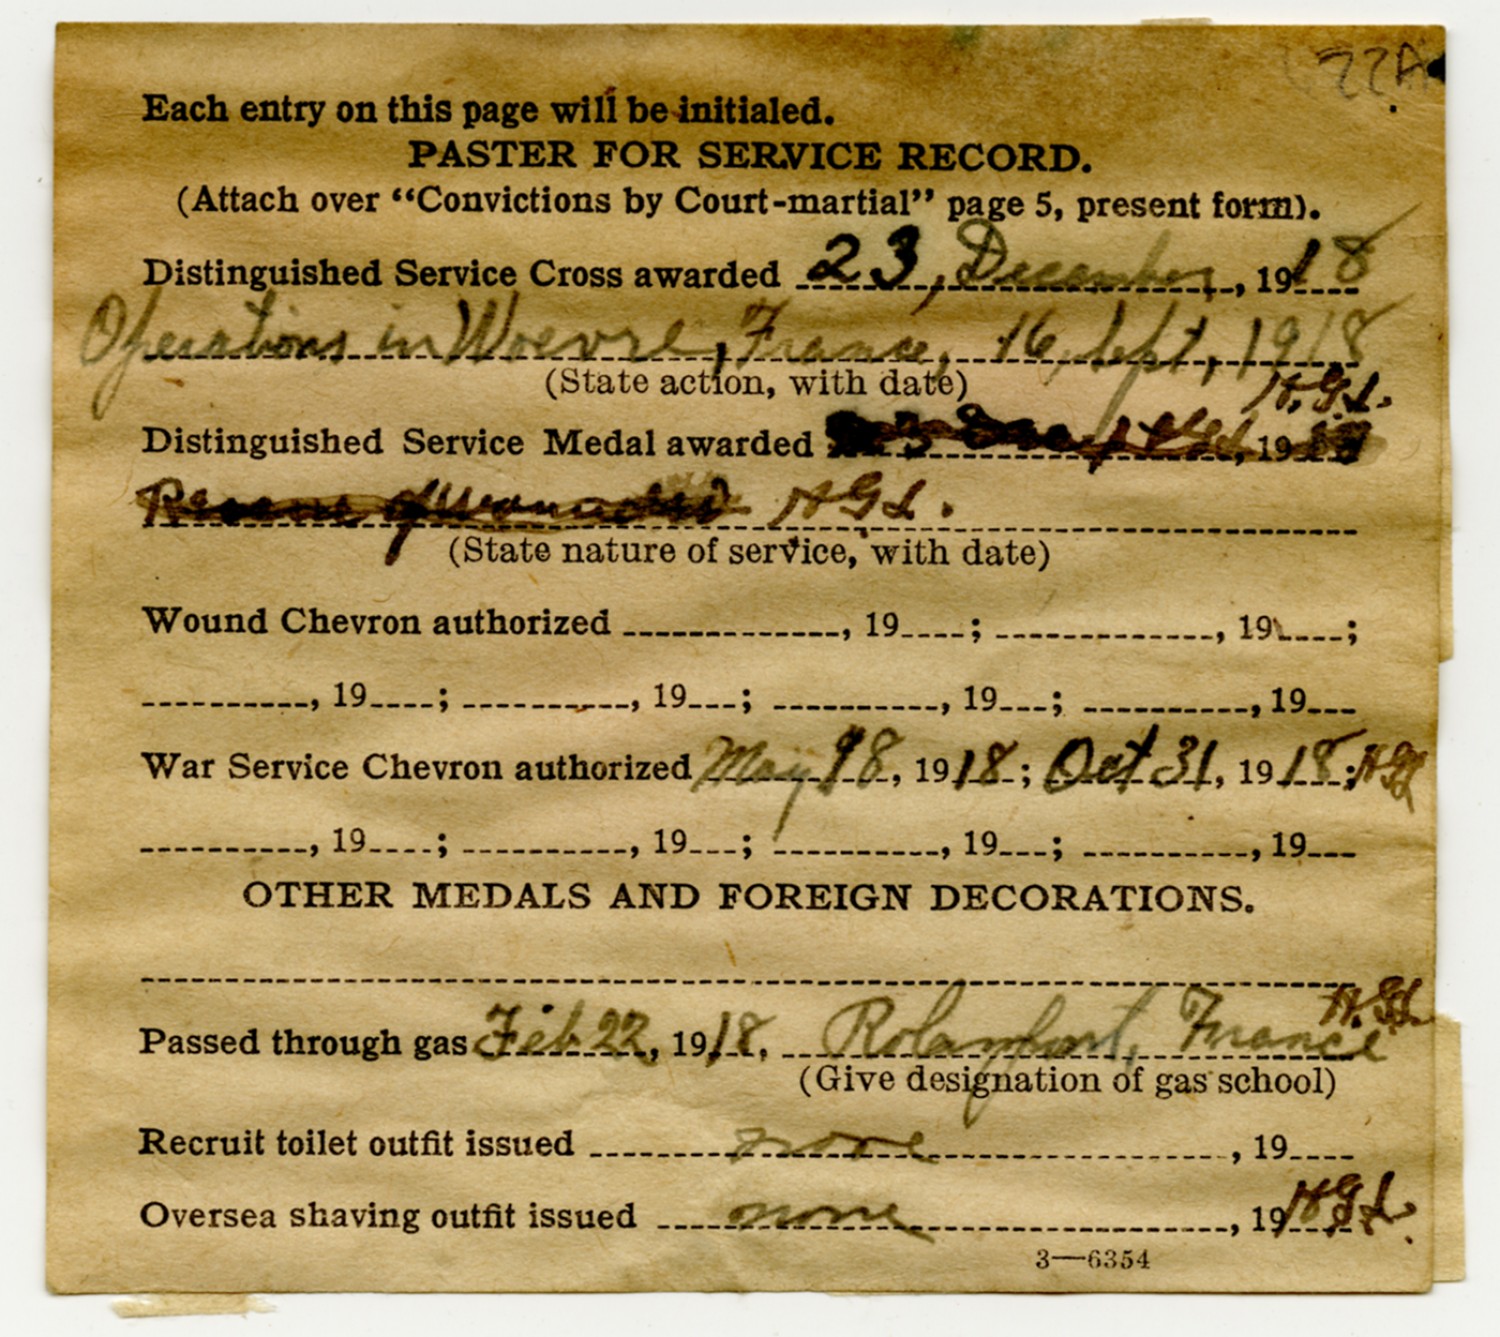 22A
Each entry on this page will be initialed.
PASTER FOR SERVICE RECORD.
(Attach over “Convictions by Court-martial” page 5, present form).
Distinguished Service Cross awarded 23, December, 1918
Operations in Woevre, France, 16, Sept, 1918
(State action, with date) H.G.L.
Distinguished Service Medal awarded , 19
Rescue of Wounded H G L.
(State nature of service, with date)
Wound Chevron authorized , 19 ; , 19 ;
, 19 ; , 19 ; , 19 ; , 19
War Service Chevron authorized May 18, 1918; Oct 31, 1918; HGL
, 19 ; , 19 ; , 19 ; , 19
OTHER MEDALS AND FOREIGN DECORATIONS.
H.G.L.
Passed through gas Feb 22, 1918, Rolampont, France
(Give designation of gas school)
Recruit toilet outfit issued none , 19
Oversea shaving outfit issued none , 19 H.G.L.
3—6354